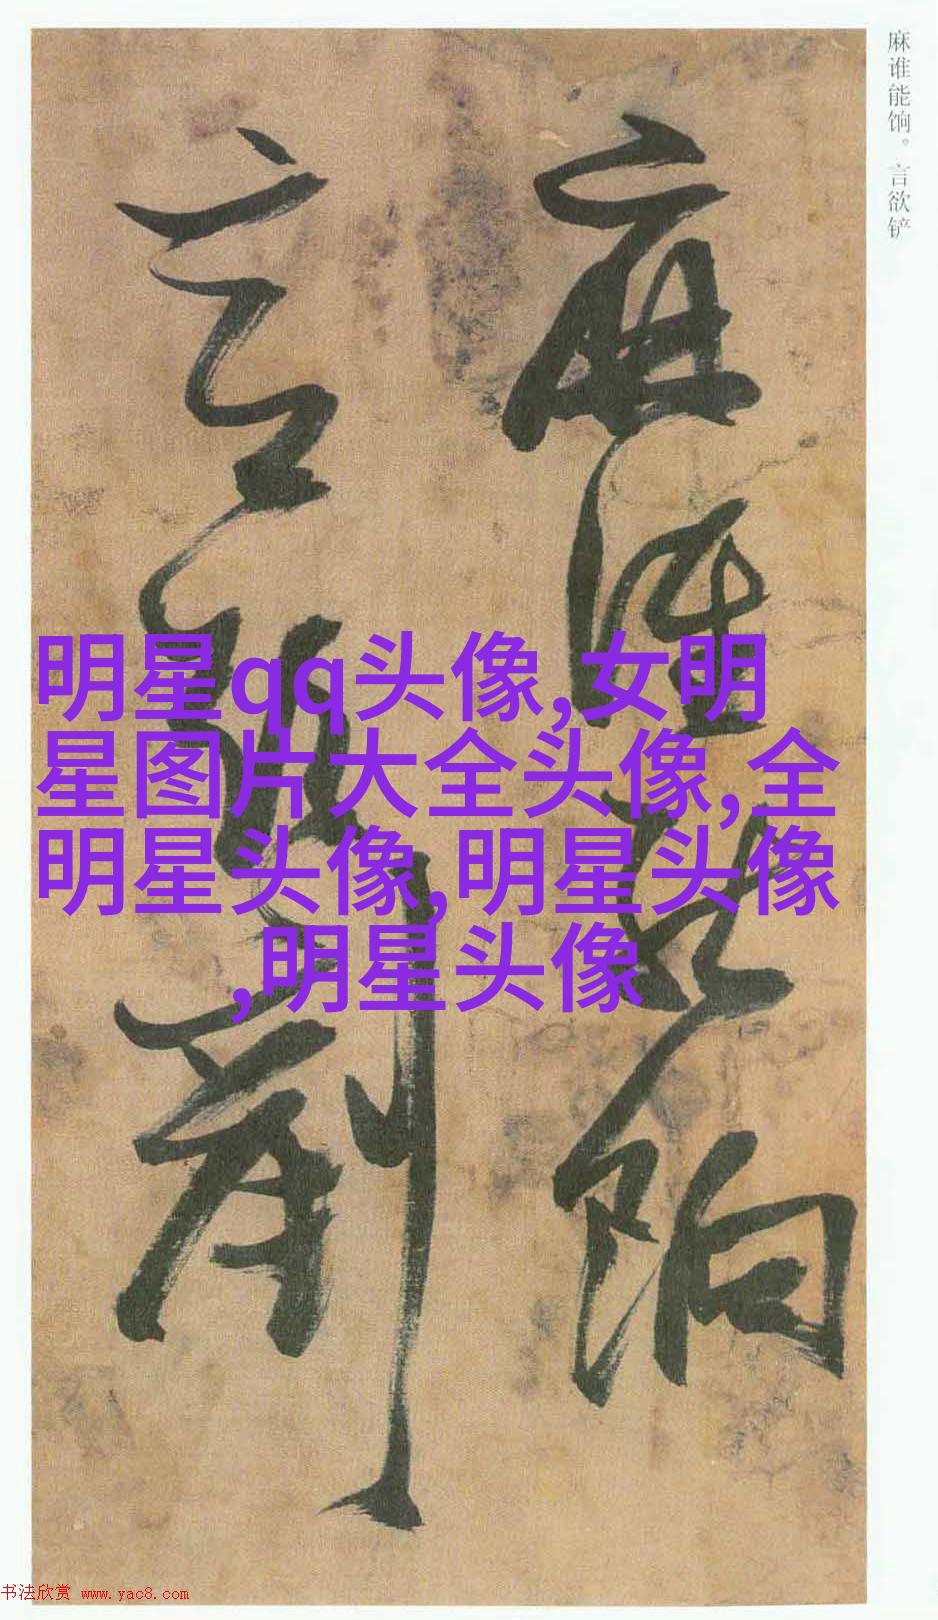 麻谁能饷。言欲铲
麻谁能饷
言欲剷
明星qq头像,女明
星图片大全头像,全
明星头像,明星头像
,明星头像
书法欣赏 www.yac8.com